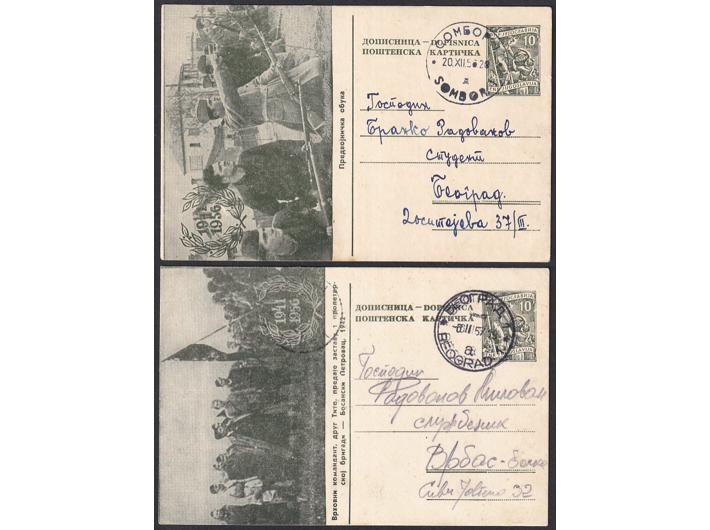 1941
1956
Предвојничка обука
ДОПИСНИЦА — DOPISNICA
ПОШТЕНСКА КАРТИЧКА
СОМБОР
20.XII.56-20
SOMBOR
10
JUGOSLAVIJA
Господин
Бранко Радованов
студент
Београд.
Доситејева 37/III.
1941
1956
Врховни командант, друг Тито, предаје заставу I пролетер-
ској бригади — Босански Петровац, 1942
ДОПИСНИЦА — DOPISNICA
ПОШТЕНСКА КАРТИЧКА
БЕОГРАД
BEOGRAD
10
Господин
Радованов Милован
службеник
Врбас-Бачка
32